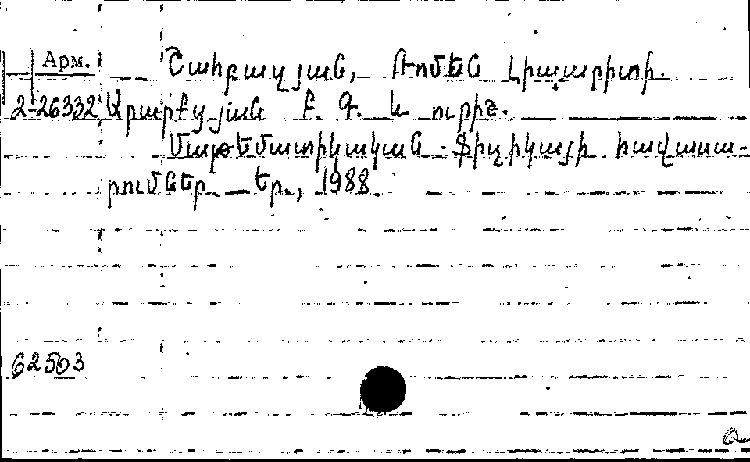 Арм. Շահբազյան, Ռոմեն Լիպարիտի.
2-26332 Առաքելյան Է. Գ. և ուրիշ.
Մաթեմատիկական ֆիզիկայի հավասա-
րումներ. — Եր., 1988.
62503